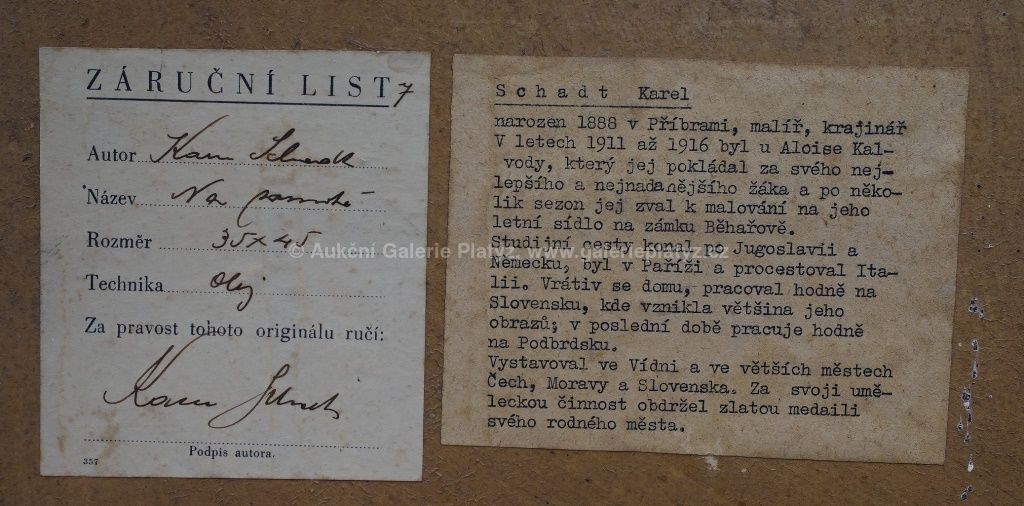 ZÁRUČNÍ LIST 7
Autor Karel Schadt
Název Na
Rozměr 35×45
Technika Olej
Za pravost tohoto originálu ručí:
Karel Schadt
Podpis autora.
357
Schadt Karel
narozen 1888 v Příbrami, malíř, krajinář
V letech 1911 až 1916 byl u Aloise Kal-
vody, který jej pokládal za svého nej-
lepšího a nejnadanějšího žáka a po něko-
lik sezon jej zval k malování na jeho
letní sídlo na zámku Běhařově.
Studijní cesty konal po Jugoslavii a
Německu, byl v Paříži a procestoval Ita-
lii. Vrátiv se domu, pracoval hodně na
Slovensku, kde vznikla většina jeho
obrazů; v poslední době pracuje hodně
na Podbrdsku.
Vystavoval ve Vídni a ve větších městech
Čech, Moravy a Slovenska. Za svoji umě-
leckou činnost obdržel zlatou medaili
svého rodného města.
© Aukční Galerie Platýz, www.galerieplatyz.cz